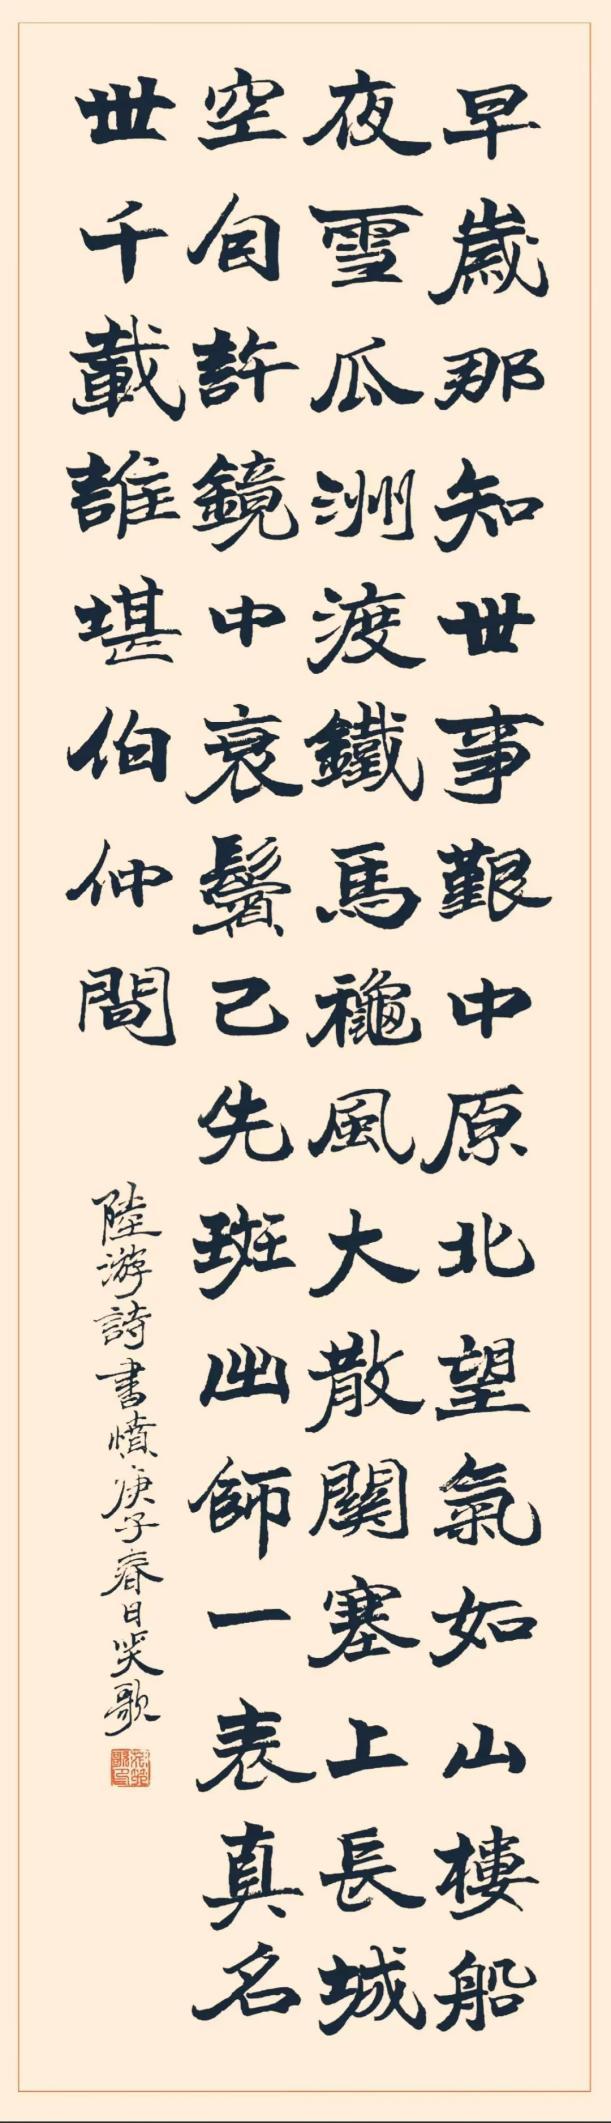 早歲那知世事艱中原北望氣如山樓船
夜雪瓜洲渡鐵馬穐風大散關塞上長城
空自許鏡中衰鬢已先斑出師一表真名
世千載誰堪伯仲間
陸游詩書憤庚子春日笑歌